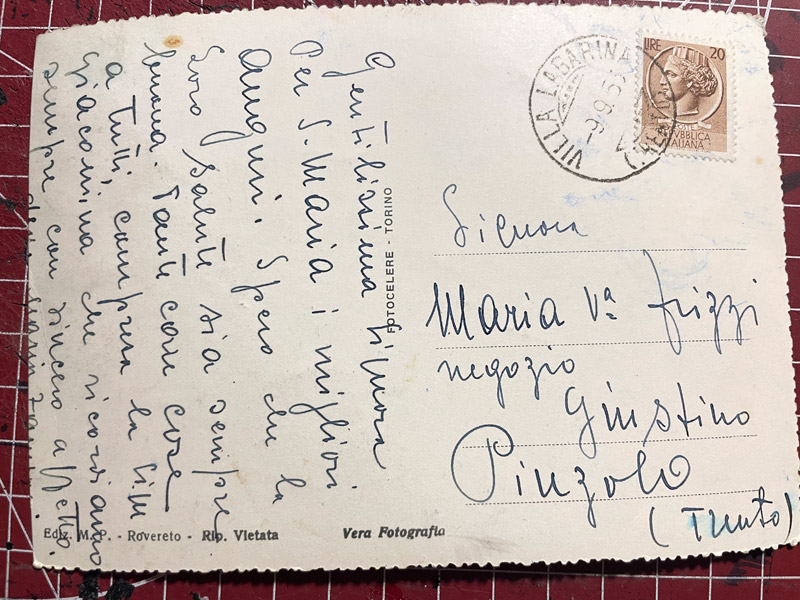 Gentilissima Signora
Per S. Maria i migliori
auguri. Spero che la
Loro salute sia sempre
buona. Tante care cose
a tutti, compresa la Sim
Giacomina che ricordiamo
sempre con sincero affetto.
FOTOCELERE - TORINO
VILLA LAGARINA
-9.9.5
(TRENTO)
LIRE 20
REPUBBLICA
ITALIANA
Signora
Maria Vª Frizzi
negozio
Giustino
Pinzolo
(Trento)
Ediz. M. P. - Rovereto - Rip. Vietata
Vera Fotografia